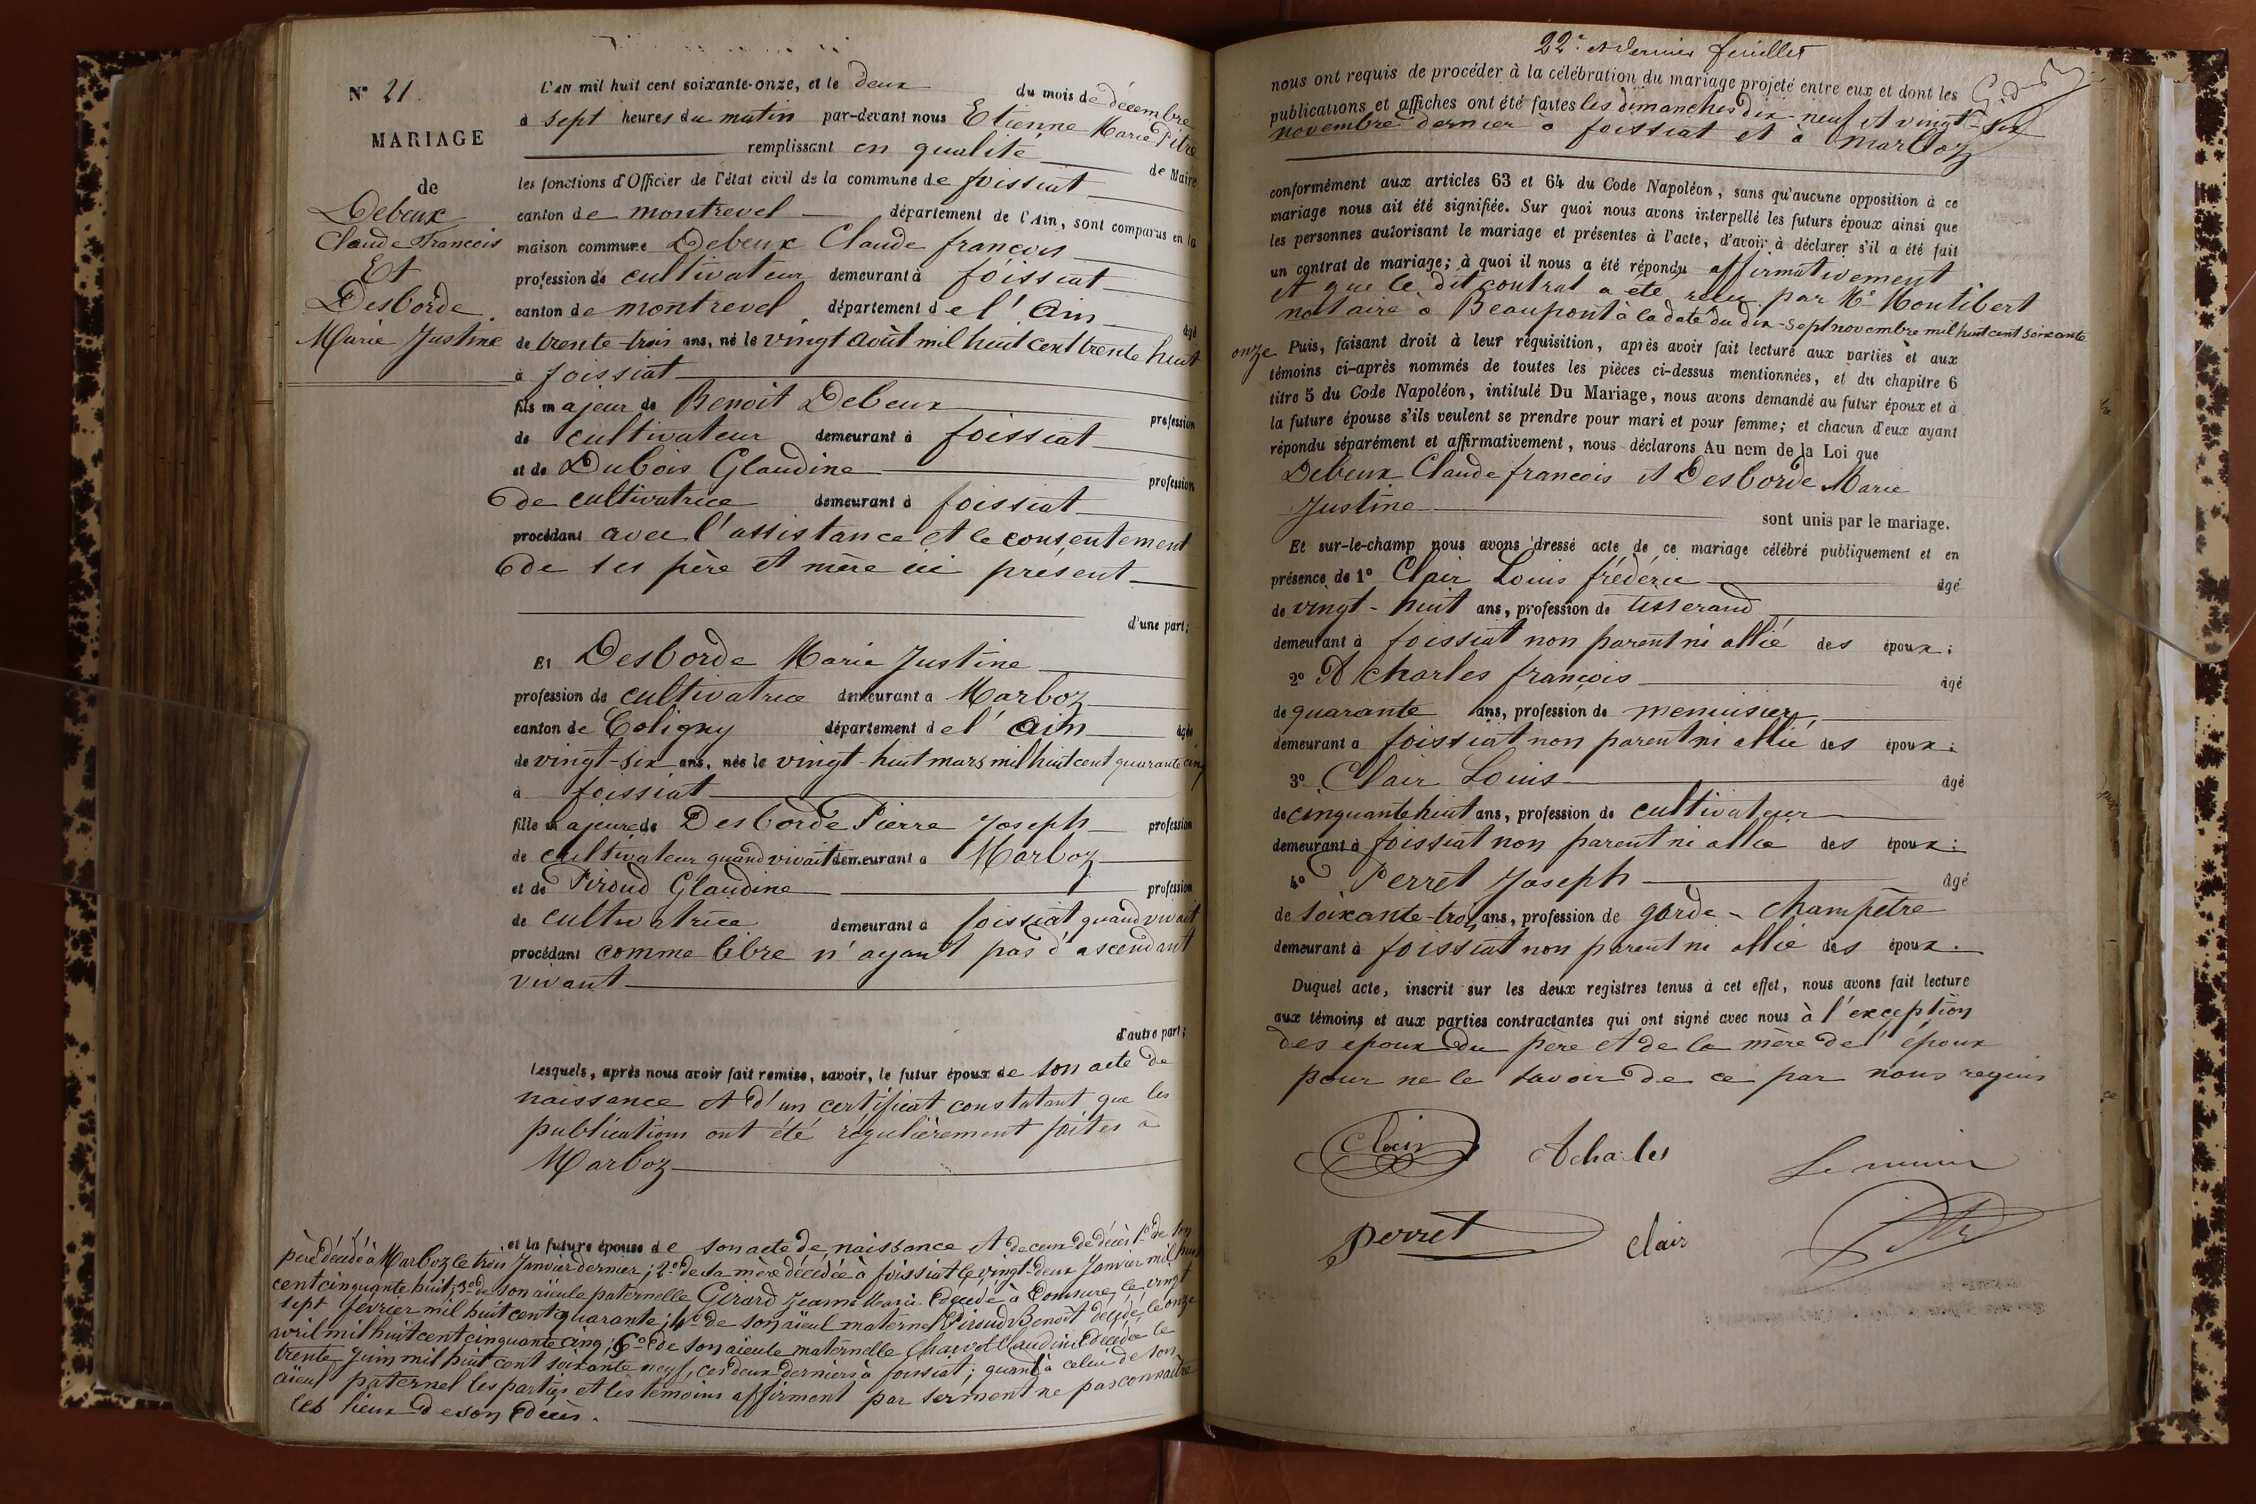 N° 21.
MARIAGE
de
Debeux
Claude Francois
Et
Desborde
Marie Justine
L'AN mil huit cent soixante-onze, et le deux du mois de décembre
à sept heures du matin par-devant nous Etienne Marie Pitre
remplissant en qualité de Maire
les fonctions d'Officier de l'état civil de la commune de foissiat
canton de montrevel département de l'Ain, sont comparus en la
maison commune Debeux Claude francois
profession de cultivateur demeurant à foissiat
canton de montrevel département de l'Ain âgé
de trente-trois ans, né le vingt août mil huit cent trente huit
à foissiat
fils majeur de Benoit Debeux profession
de cultivateur demeurant à foissiat
et de Dubois Glaudine profession
de cultivatrice demeurant à foissiat
procédant avec l'assistance et le consentement
de ses père et mère ici présent
d'une part;
Et Desborde Marie Justine
profession de cultivatrice demeurant à Marboz
canton de Coligny département de l'Ain âgée
de vingt-six ans, née le vingt-huit mars mil huit cent quarante cinq
à foissiat
fille majeure de Desborde Pierre Joseph profession
de cultivateur quand vivait demeurant à Marboz
et de Piroud Glaudine profession
de cultivatrice demeurant à foissiat quand vivait
procédant comme libre n'ayant pas d'ascendant
vivant
d'autre part;
Lesquels, après nous avoir fait remise, savoir, le futur époux de son acte de
naissance et d'un certificat constatant que les
publications ont été régulièrement faites à
Marboz
et la future épouse de son acte de naissance et de ceux de décès 1° de son
père décédé à Marboz le trois Janvier dernier; 2° de sa mère décédée à foissiat le vingt-deux Janvier mil huit
cent cinquante huit; 3° de son aïeule paternelle Girard Jeanne Marie décédée à le vingt
sept février mil huit cent quarante; 4° de son aïeul maternel Piroud Benoît décédé le onze
avril mil huit cent cinquante cinq; 5° de son aïeule maternelle Claudine décédée le
trente Juin mil huit cent soixante neuf, ces deux derniers à foissiat; quant à celui de son
aïeul paternel les parties et les témoins affirment par serment ne pas connaître
les lieux de son décès.
22e et dernier feuillet
nous ont requis de procéder à la célébration du mariage projeté entre eux et dont les
publications et affiches ont été faites les dimanches dix-neuf et vingt-six
novembre dernier à foissiat et à Marboz
conformément aux articles 63 et 64 du Code Napoléon, sans qu'aucune opposition à ce
mariage nous ait été signifiée. Sur quoi nous avons interpellé les futurs époux ainsi que
les personnes autorisant le mariage et présentes à l'acte, d'avoir à déclarer s'il a été fait
un contrat de mariage; à quoi il nous a été répondu affirmativement
et que le dit contrat a été reçu par Me Montibert
notaire à Beaupont à la date du dix-sept novembre mil huit cent soixante
onze Puis, faisant droit à leur réquisition, après avoir fait lecture aux parties et aux
témoins ci-après nommés de toutes les pièces ci-dessus mentionnées, et du chapitre 6
titre 5 du Code Napoléon, intitulé Du Mariage, nous avons demandé au futur époux et à
la future épouse s'ils veulent se prendre pour mari et pour femme; et chacun d'eux ayant
répondu séparément et affirmativement, nous déclarons Au nom de la Loi que
Debeux Claude francois et Desborde Marie
Justine
sont unis par le mariage.
Et sur-le-champ nous avons dressé acte de ce mariage célébré publiquement et en
présence de 1° Clair Louis frédéric âgé
de vingt-huit ans, profession de tisserand
demeurant à foissiat non parent ni allié des époux;
2° Acharles françois âgé
de quarante ans, profession de menuisier
demeurant à foissiat non parent ni allié des époux;
3° Clair Louis âgé
de cinquante huit ans, profession de cultivateur
demeurant à foissiat non parent ni allié des époux;
4° Perret Joseph âgé
de soixante-trois ans, profession de garde-champêtre
demeurant à foissiat non parent ni allié des époux.
Duquel acte, inscrit sur les deux registres tenus à cet effet, nous avons fait lecture
aux témoins et aux parties contractantes qui ont signé avec nous à l'exception
des époux du père et de la mère de l'époux
pour ne le savoir de ce par nous requis
Clair Acharles Le maire
Perret Clair Pitre